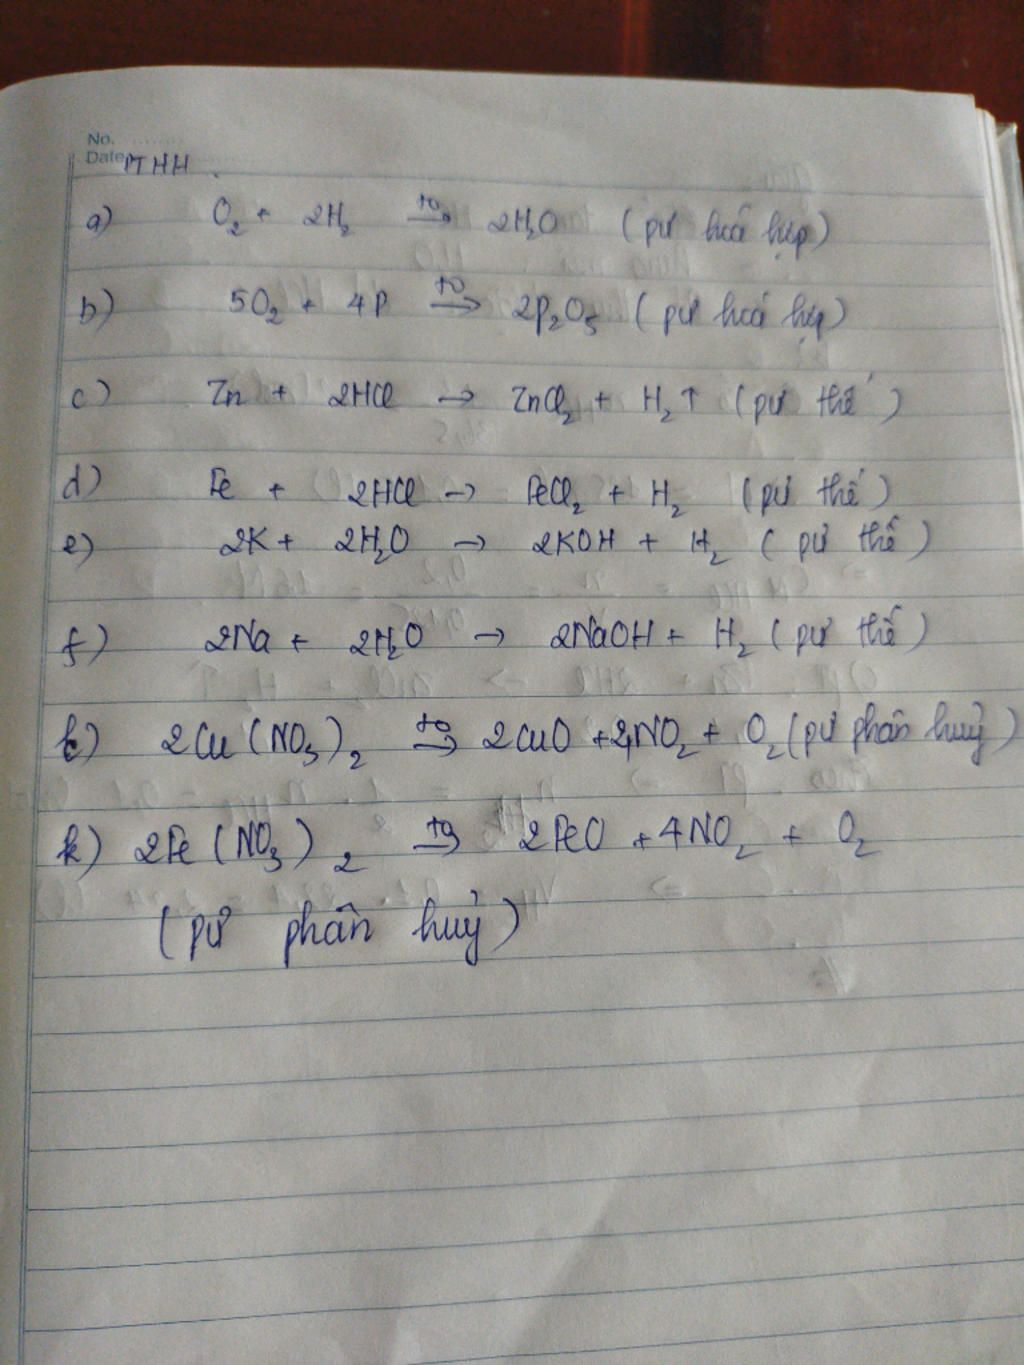 No. ........
Date PTHH.
a) O₂ + 2H₂ →(t⁰) 2H₂O (pư hoá hợp)
b) 5O₂ + 4P →(t⁰) 2P₂O₅ (pư hoá hợp)
c) Zn + 2HCl → ZnCl₂ + H₂↑ (pư thế)
d) Fe + 2HCl → FeCl₂ + H₂ (pư thế)
e) 2K + 2H₂O → 2KOH + H₂ (pư thế)
f) 2Na + 2H₂O → 2NaOH + H₂ (pư thế)
2Cu(NO₃)₂ →(t⁰) 2CuO + 4NO₂ + O₂ (pư phân huỷ)
k) 2Fe(NO₃)₂ →(t⁰) 2FeO + 4NO₂ + O₂
(pư phân huỷ)